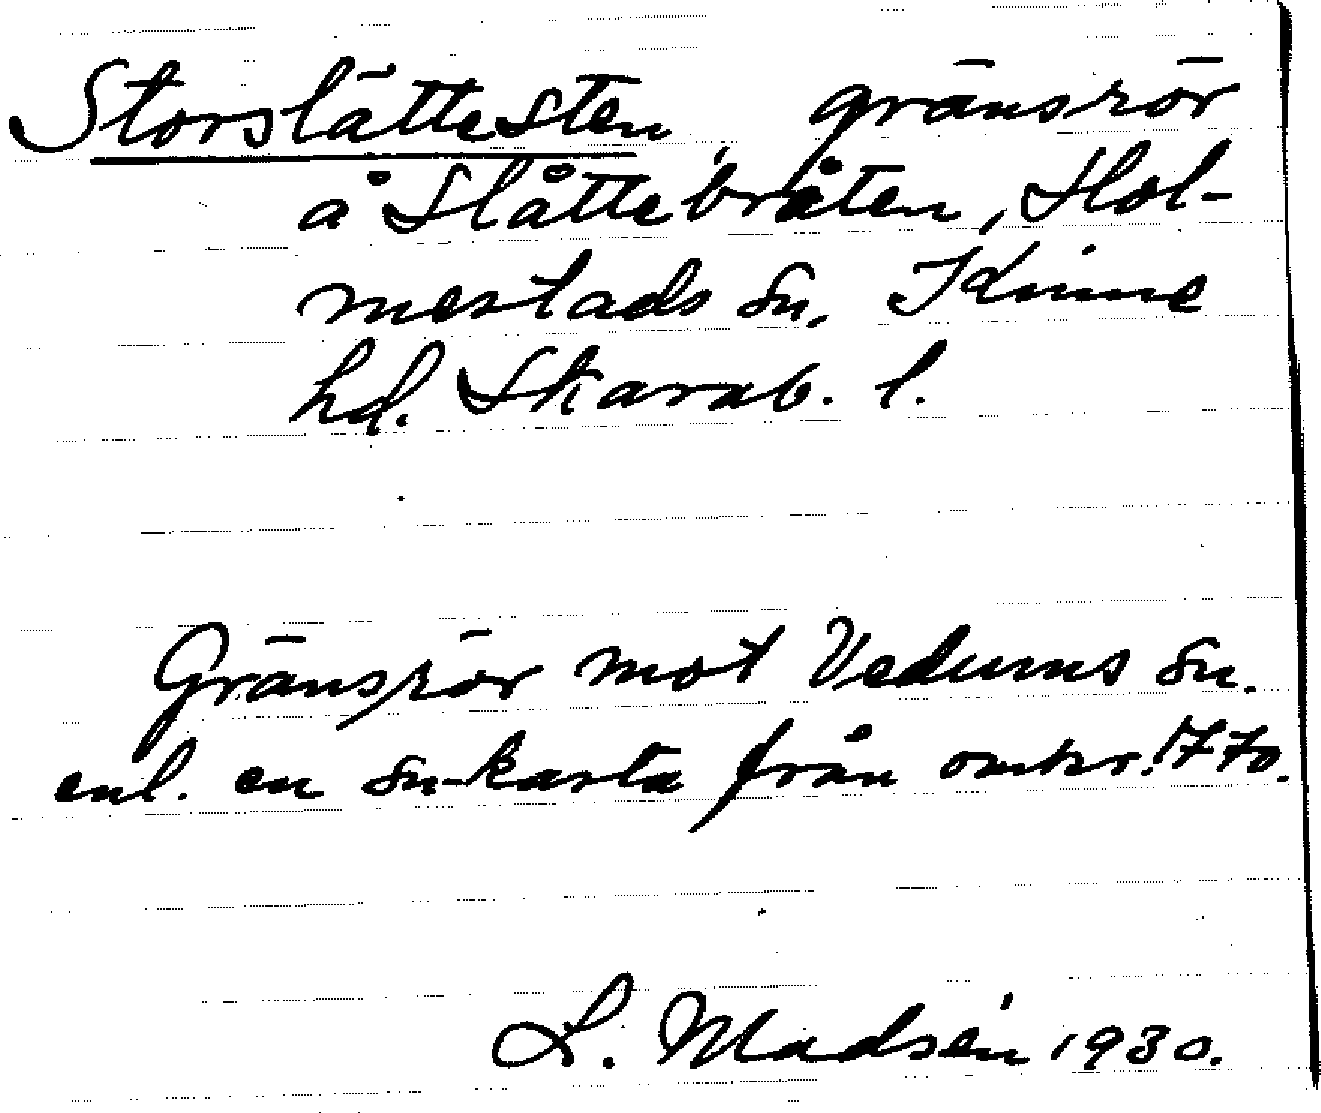 Storslättesten gränsrör
å Slåttebråten, Hol-
mestads sn. Kinne
hd. Skarab. l.
Gränsrör mot Vedums sn.
enl. en sn-karta från omkr. 1770.
L. Madsén 1930.